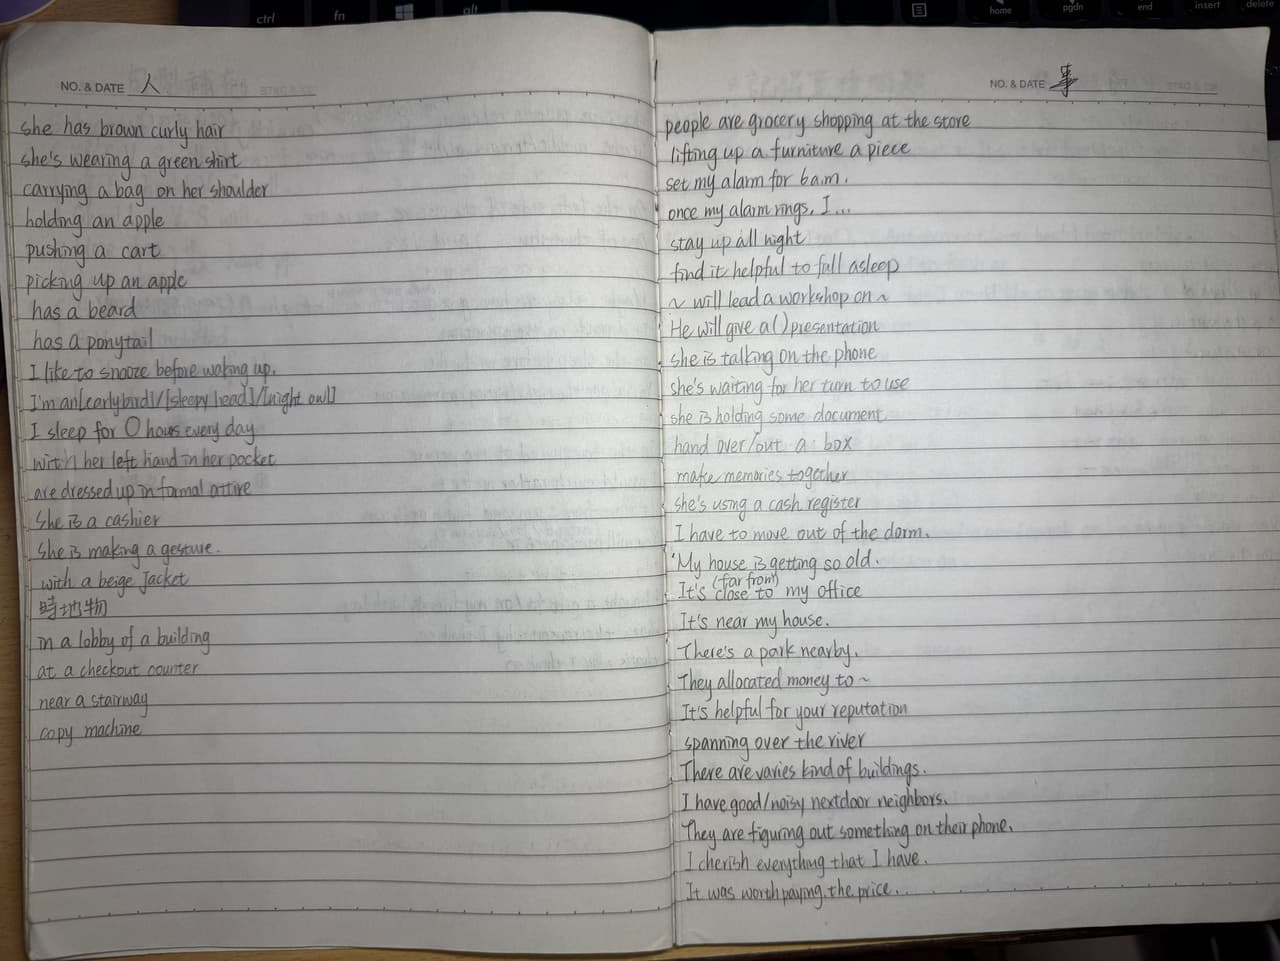 ctrl
fn
alt
home
pgdn
end
insert
delete
NO. & DATE 人
she has brown curly hair
she's wearing a green shirt
carrying a bag on her shoulder
holding an apple
pushing a cart
picking up an apple
has a beard
has a ponytail
I like to snooze before waking up.
I'm an [early bird]/[sleepy head]/[night owl]
I sleep for O hours every day
with her left hand in her pocket
are dressed up in formal attire
She is a cashier
She is making a gesture.
with a beige jacket
時地物
in a lobby of a building
at a checkout counter
near a stairway
copy machine
NO. & DATE 事
people are grocery shopping at the store
lifting up a furniture a piece
set my alarm for 6a.m.
once my alarm rings, I...
stay up all night
find it helpful to fall asleep
~ will lead a workshop on ~
He will give a ( ) presentation
she is talking on the phone
she's waiting for her turn to use
she is holding some document
hand over/out a box
make memories together
she's using a cash register
I have to move out of the dorm.
My house is getting so old.
(far from)
It's close to my office
It's near my house.
There's a park nearby.
They allocated money to ~
It's helpful for your reputation
spanning over the river
There are varies kind of buildings.
I have good/noisy nextdoor neighbors.
They are figuring out something on their phone.
I cherish everything that I have.
It was worth paying the price...